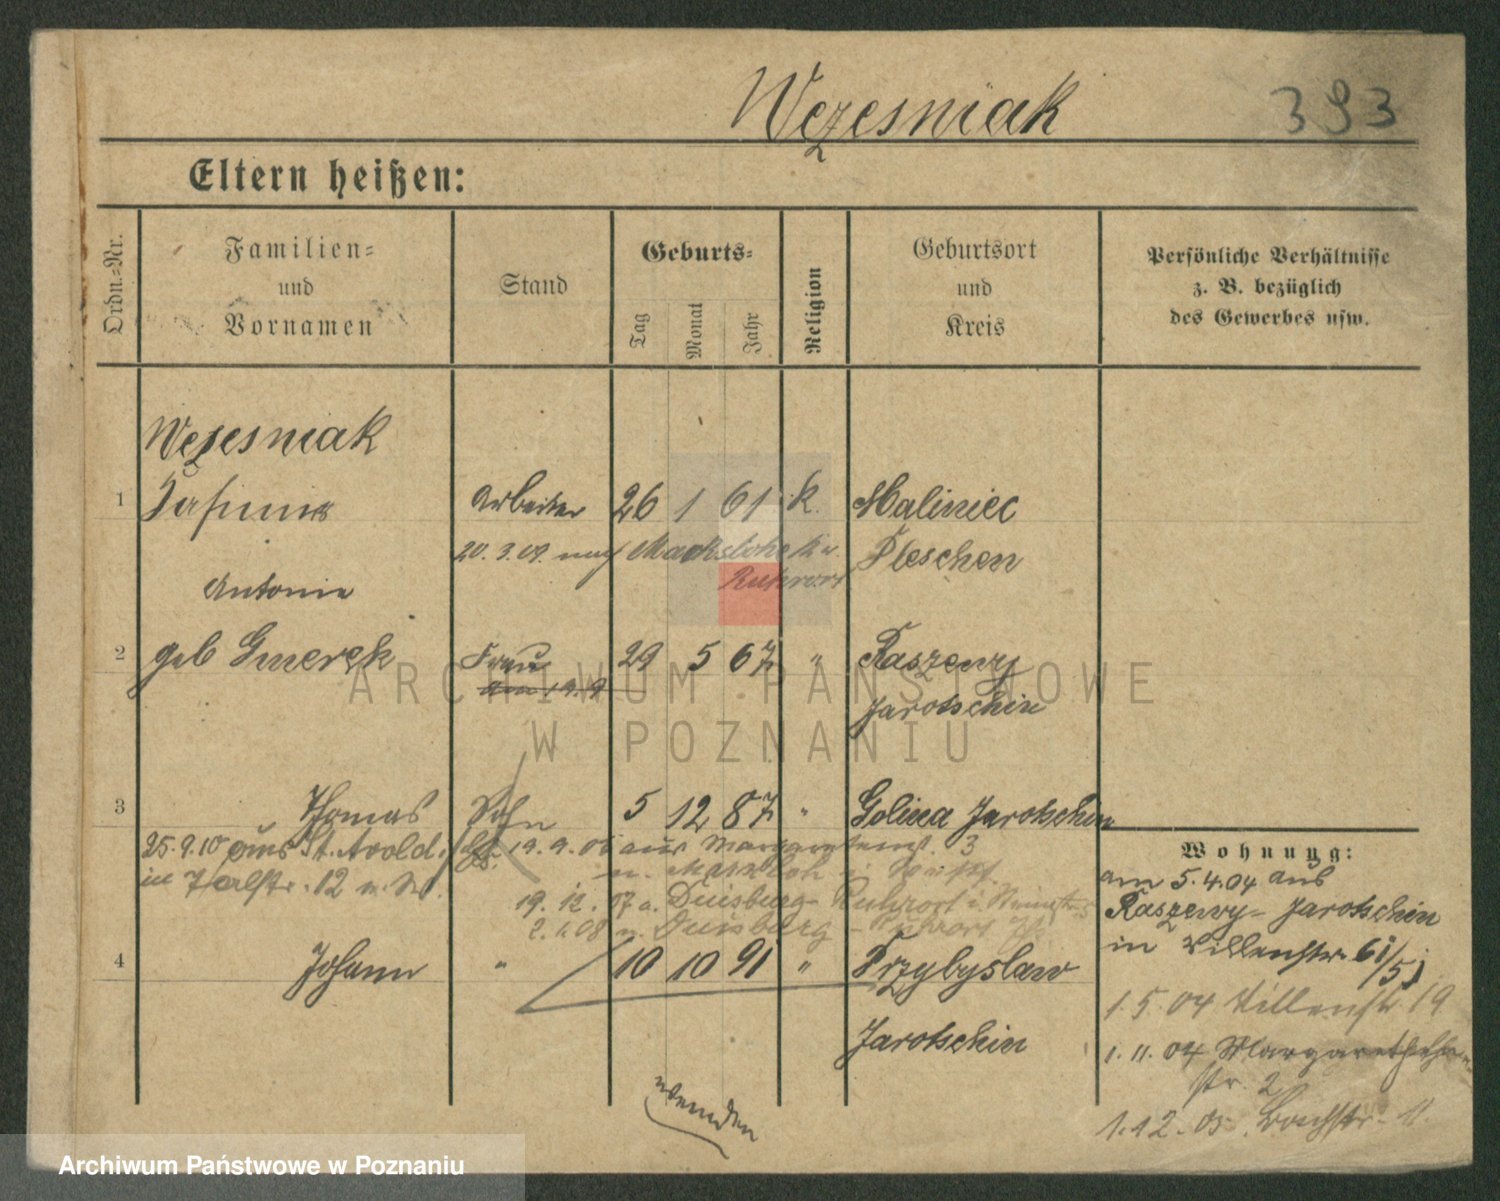 Wezesniak 393
Eltern heißen:
Ordn.=Nr.
Familien=
und
Vornamen
Stand
Geburts=
Tag
Monat
Jahr
Religion
Geburtsort
und
Kreis
Persönliche Verhältnisse
z. B. bezüglich
des Gewerbes usw.
Wezesniak
1 Arbeiter 26 1 61 k. Maliniec
20. 3. 09. nach Marksloh Kr. Pleschen
Ruhrort
Antonie
2 geb Gmerek Frau 29 5 67 " Raszewy
am 19.9
Jarotschin
3 Thomas Sohn 5 12 87 " Golina Jarotschin
25.9.10 aus St. Avold
19.9.06 aus Margaretenst. 3
in Talstr. 12
n. Marxloh
19. 12. 07 a. Duisburg-Ruhrort
2.1.08 n. Duisburg-Ruhrort
4 Johann " 10 10 91 " Przybyslaw
Jarotschin
Wohnung:
am 5.4.04 aus
Raszewy-Jarotschin
in Villenstr. 61/51
1.5.04 Villenstr. 19
1.11.04 Margarethen
str. 2
1.12.05.
wenden
ARCHIWUM PAŃSTWOWE
W POZNANIU
Archiwum Państwowe w Poznaniu